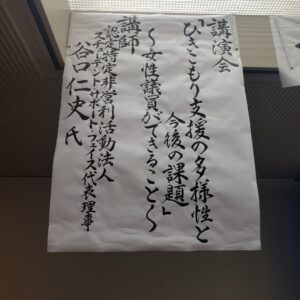 講演会
「ひきこもり支援の多様性と
今後の課題」
～女性議員ができること～
講師
認定特定非営利活動法人
スチューデント・サポート・フェイス代表理事
谷口仁史氏